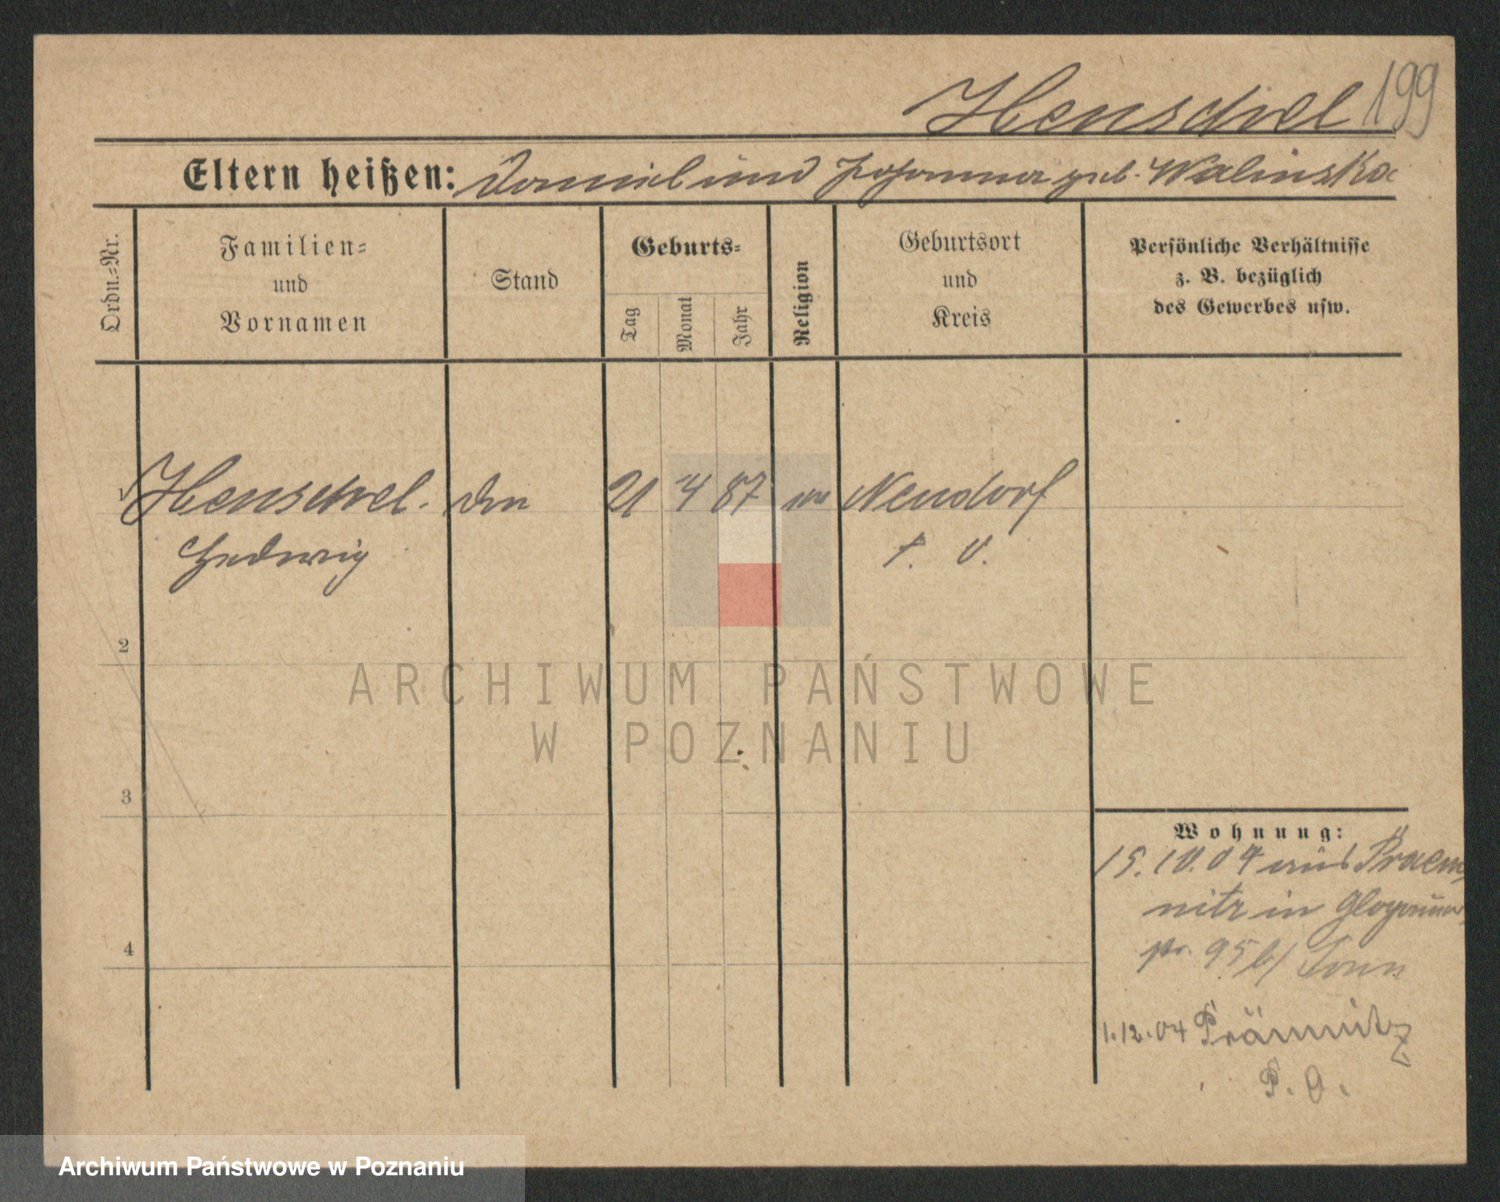 Henschel 199
Eltern heißen: Daniel und Johanna geb. Walinska
Ordn.-Nr.
Familien-
und
Vornamen
Stand
Geburts-
Tag
Monat
Jahr
Religion
Geburtsort
und
Kreis
Persönliche Verhältnisse
z. B. bezüglich
des Gewerbes usw.
1 Henschel. 21 4 87 Neudorf
Hedwig P. O.
2
ARCHIWUM PAŃSTWOWE
W POZNANIU
3
Wohnung:
15.10.04 aus Praem
nitz in Glogauer
str. 95 b/
4
1.12.04 Prämnitz
P. O.
Archiwum Państwowe w Poznaniu